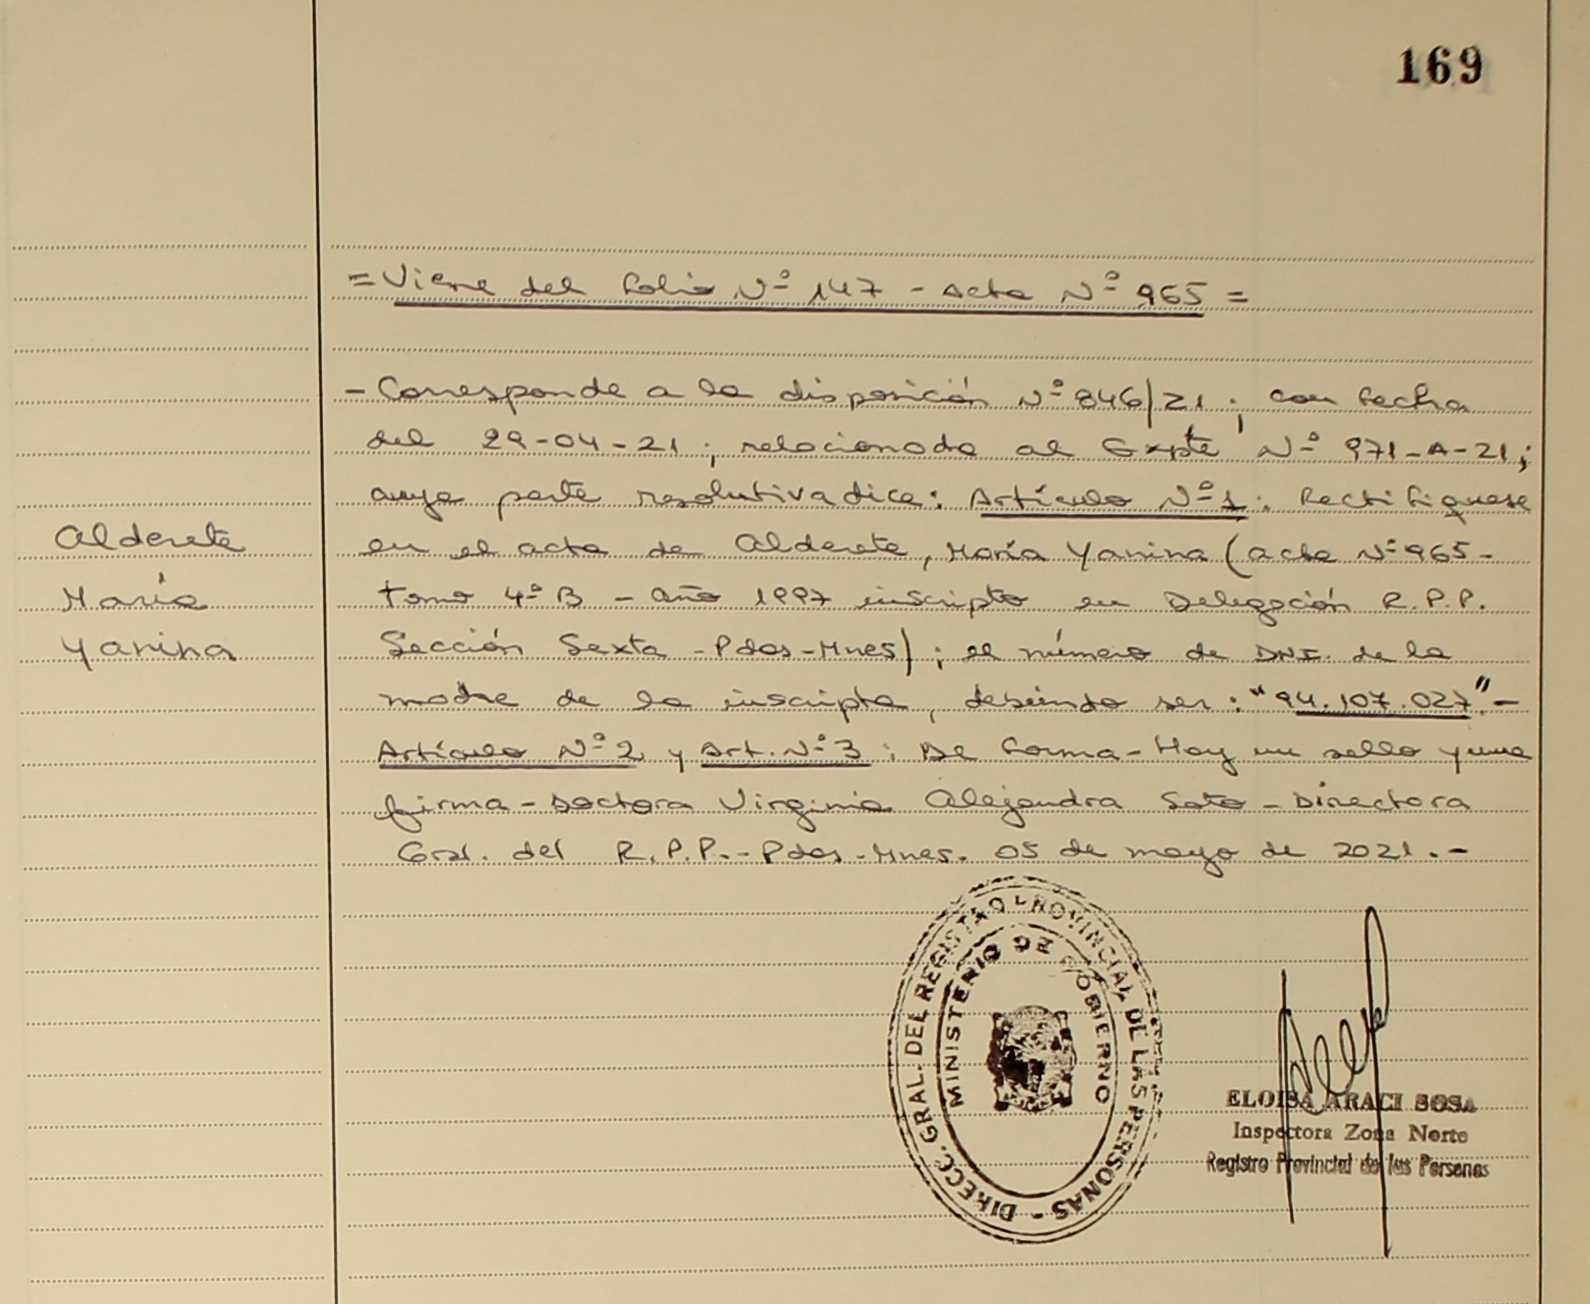 169
=Viene del folio Nº 147 - Acta Nº 965 =
- Corresponde a la disposición Nº 846/21 ; con fecha
del 29-04-21 ; relacionada al Expte Nº 971-A-21;
cuya parte resolutiva dice: Artículo Nº 1 : Rectifiquese
en el acta de Alderete, María Yanina (acta Nº 965-
Tomo 4º B - año 1997 inscripto en Delegación R.P.P.
Sección Sexta - Pdas - Mnes) ; el número de DNI. de la
madre de la inscripta, debiendo ser : "94.107.027".-
Artículo Nº 2 y Art. Nº 3 : De forma - Hay un sello y una
firma - Doctora Virginia Alejandra Soto - Directora
Gral. del R.P.P. - Pdas - Mnes. 05 de mayo de 2021.-
Alderete
María
Yanina
DIRECC. GRAL. DEL REGISTRO PROVINCIAL DE LAS PERSONAS -
MINISTERIO DE GOBIERNO
ELOISA ARACI SOSA
Inspectora Zona Norte
Registro Provincial de las Personas